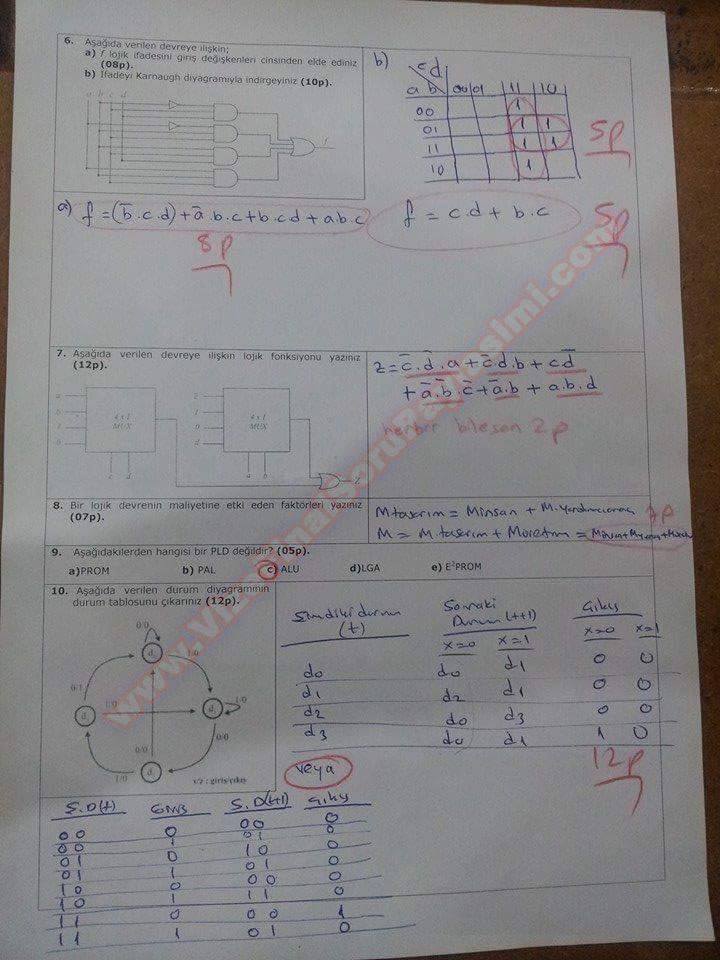 6. Aşağıda verilen devreye ilişkin;
a) f lojik ifadesini giriş değişkenleri cinsinden elde ediniz
(08p).
b) İfadeyi Karnaugh diyagramıyla indirgeyiniz (10p).
a b c d
f
b)
cd
ab 00 01 11 10
00 1
01 1 1
11 1 1
10 1
5p
a) f = (b̅.c.d) + a̅.b.c + b.c.d + a.b.c
8p
f = c.d + b.c
5p
7. Aşağıda verilen devreye ilişkin lojik fonksiyonu yazınız
(12p).
a
b
1
0
4 x 1
MUX
c d
0
d
4 x 1
MUX
a b
Z
z = c̅.d̅.a + c̅.d.b + c d̅
+ a̅.b̅.c̅ + a̅.b + a.b.d
herbir bileşen 2p
8. Bir lojik devrenin maliyetine etki eden faktörleri yazınız
(07p).
Mtasarım = Minsan + M.
M = M.tasarım + Müretim =
9. Aşağıdakilerden hangisi bir PLD değildir? (05p).
a)PROM b) PAL c) ALU d)LGA e) E²PROM
10. Aşağıda verilen durum diyagramının
durum tablosunu çıkarınız (12p).
0/0
1/0
0/1
1/0
1/0
0/0
0/0
1/0
x/z : giriş/çıkış
Şimdiki durum
(t)
Sonraki
Durum (t+1)
x=0 x=1
Çıkış
x=0 x=1
d0 d0 d1 0 0
d1 d2 d1 0 0
d2 d0 d3 0 0
d3 d0 d1 1 0
12p
veya
Ş.D(t) Giriş S.D(t+1) Çıkış
00 0 00 0
00 1 01 0
01 0 10 0
01 1 01 0
10 0 00 0
10 1 11 0
11 0 00 1
11 1 01 0
www.VizeFinalSoruPaylasimi.com